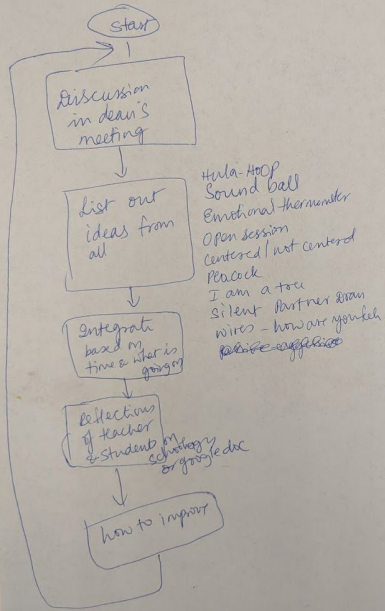 Start
Discussion
in dean's
meeting
List out
ideas from
all
Hula-HOOP
Sound ball
Emotional thermometer
Open session
centered/not centered
Peacock
I am a tree
Silent Partner
wires - how are you
Integrate
based on
time & what is
going on
Reflections
of teacher
& students on
schoology
or google doc
how to improve